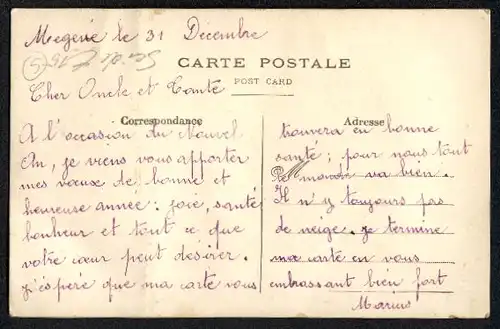 Megève le 31 Décembre
CARTE POSTALE
POST CARD
Cher Oncle et Tante
Correspondance
A l'occasion du Nouvel
An, je viens vous apporter
mes vœux de bonne et
heureuse année: joie, santé
bonheur et tout ce que
votre cœur peut désirer.
j'éspére que ma carte vous
Adresse
trouvera en bonne
santé; pour nous tout
le monde va bien.
Il n'y toujours pas
de neige. je termine
ma carte en vous
embrassant bien fort
Marius